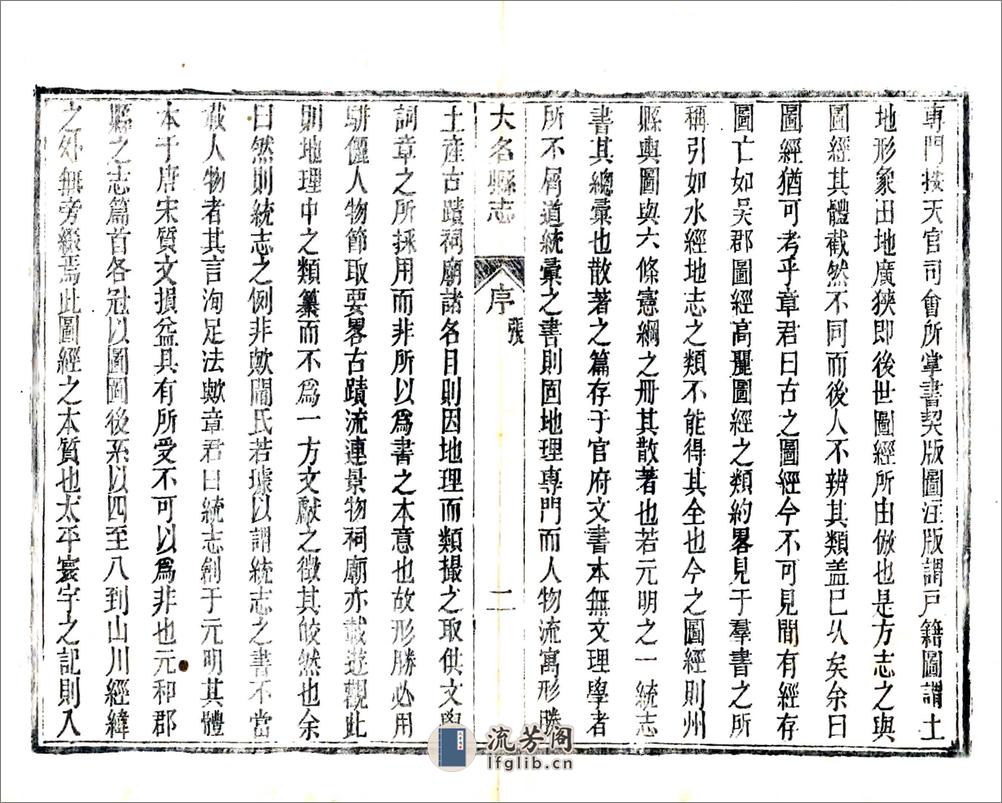 專門按天官司會所掌書契版圖注版謂戸籍圖謂土
地形象田地廣狹即後世圖經所由倣也是方志之與
圖經其體截然不同而後人不辨其類盖已久矣余曰
圖經猶可考乎章君曰古之圖經今不可見間有經存
圖亡如吳郡圖經高麗圖經之類約畧見于羣書之所
稱引如水經地志之類不能得其全也今之圖經則州
縣輿圖與六條憲綱之册其散著也若元明之一統志
書其總彙也散著之篇存于官府文書本無文理學者
所不屑道統彙之書則固地理專門而人物流寓形勝
大名縣志
序
張
二
土産古蹟祠廟諸名目則因地理而類撮之取供文學
詞章之所採用而非所以爲書之本意也故形勝必用
駢儷人物節取要畧古蹟流連景物祠廟亦載遊觀此
則地理中之類纂而不爲一方文獻之徵其皎然也余
曰然則統志之例非歟閻氏若璩以謂統志之書不當
載人物者其言洵足法歟章君曰統志創于元明其體
本于唐宋質文損益具有所受不可以爲非也元和郡
縣之志篇首各冠以圖圖後系以四至八到山川經緯
之外無旁綴焉此圖經之本質也太平寰宇之記則入
流芳阁
lfglib.cn